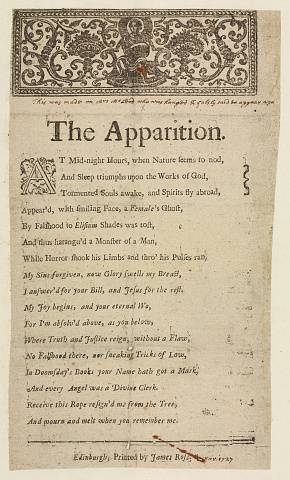 This was made on Mrs McLeod who was hanged & falsely said be appear again
The Apparition.
AT Mid-night Hours, when Nature seems to nod,
And Sleep triumphs upon the Works of God,
Tormented Souls awake, and Spirits fly abroad,
Appear'd, with smiling Face, a Female's Ghost,
By Falshood to Elisium Shades was tost,
And thus harangu'd a Monster of a Man,
While Horror shook his Limbs and thro' his Pulses ran,
My Sins forgiven, now Glory swells my Breast,
I answer'd for your Bill, and Jesus for the rest.
My Joy begins, and your eternal Wo,
For I'm absolv'd above, as you below,
Where Truth and Justice reign, without a Flaw,
No Falshood there, nor sneaking Tricks of Law,
In Doomsday's Books your Name hath got a Mark,
And every Angel was a Divine Clerk.
Receive this Rope resign'd me from the Tree,
And mourn and melt when you remember me.
Edinburgh, Printed by James Ross, 1727